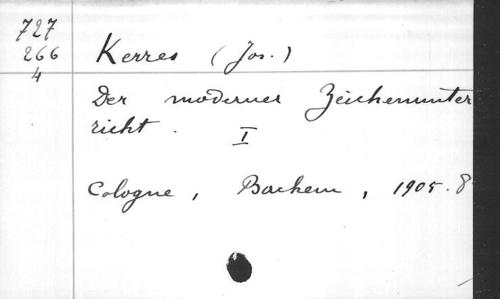 727
266
4
Kerres (Jos.)
Der moderner Zeichenunter
richt.
I
Cologne, Bachem, 1905. 8